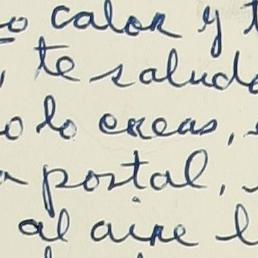 calor y
, te salud
o lo creas,
postal,
al aire